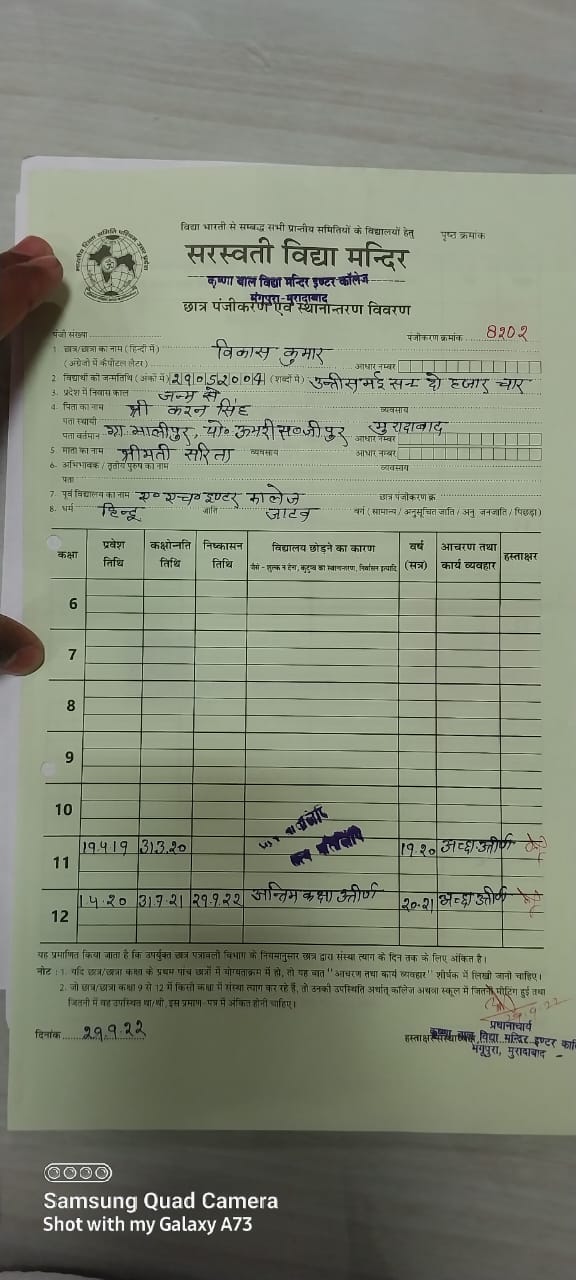 विद्या भारती से सम्बद्ध सभी प्रान्तीय समितियों के विद्यालयों हेतु पृष्ठ क्रमांक
सरस्वती विद्या मन्दिर
कृष्णा बाल विद्या मन्दिर इण्टर कॉलेज
मंगूपुरा-मुरादाबाद
छात्र पंजीकरण एवं स्थानान्तरण विवरण
पंजी संख्या पंजीकरण क्रमांक 8202
1. छात्र/छात्रा का नाम (हिन्दी में) विकास कुमार
(अंग्रेजी में कैपीटल लेटर) आधार नम्बर
2. विद्यार्थी की जन्मतिथि (अंकों में) 29052004 (शब्दों में) उन्तीस मई सन दो हजार चार
3. प्रदेश में निवास काल जन्म से
4. पिता का नाम श्री करन सिंह व्यवसाय
पता स्थायी मुरादाबाद
पता वर्तमान आधार नम्बर
5. माता का नाम श्रीमती सरिता व्यवसाय आधार नम्बर
6. अभिभावक / तृतीय पुरुष का नाम व्यवसाय
पता
7. पूर्व विद्यालय का नाम इण्टर कालेज छात्र पंजीकरण क्र.
8. धर्म हिन्दू जाति जाटव वर्ग (सामान्य / अनुसूचित जाति / अनु. जनजाति / पिछड़ा)
कक्षा प्रवेश तिथि कक्षोन्नति तिथि निष्कासन तिथि विद्यालय छोड़ने का कारण वर्ष (सत्र) आचरण तथा कार्य व्यवहार हस्ताक्षर
जैसे - शुल्क न देना, कुटुम्ब का स्थानान्तरण, निर्वासन इत्यादि
6
7
8
9
10
11 19.4.19 31.3.20 19.20 उत्तीर्ण
12 1.4.20 31.7.21 29.9.22 अन्तिम कक्षा उत्तीर्ण 20.21 उत्तीर्ण
यह प्रमाणित किया जाता है कि उपर्युक्त छात्र पत्रावली विभाग के नियमानुसार छात्र द्वारा संस्था त्याग के दिन तक के लिए अंकित है।
नोट : 1. यदि छात्र/छात्रा कक्षा के प्रथम पांच छात्रों में योग्यताक्रम में हो, तो यह बात "आचरण तथा कार्य व्यवहार" शीर्षक में लिखी जानी चाहिए।
2. जो छात्र/छात्रा कक्षा 9 से 12 में किसी कक्षा में संस्था त्याग कर रहे हैं, तो उनकी उपस्थिति अर्थात् कॉलेज अथवा स्कूल में जितनी मीटिंग हुई तथा
जितनी में वह उपस्थित था/थी, इस प्रमाण-पत्र में अंकित होनी चाहिए।
29.9.22
दिनांक 29.9.22
प्रधानाचार्य
कृष्णा बाल विद्या मन्दिर इण्टर
मंगूपुरा, मुरादाबाद
Samsung Quad Camera
Shot with my Galaxy A73